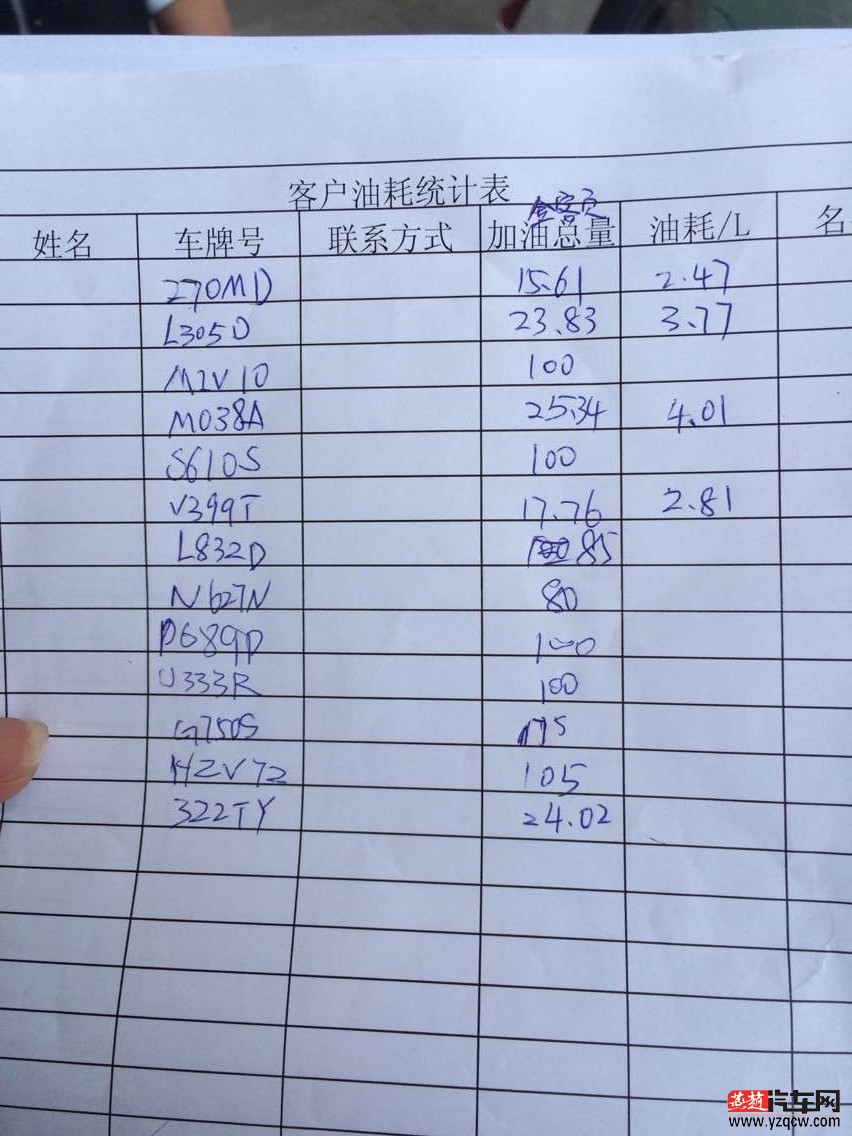 客户油耗统计表
姓名 车牌号 联系方式 加油总量 油耗/L 名
270MD 15.61 2.47
L305D 23.83 3.77
M2V10 100
M038A 25.34 4.01
S610S 100
V399T 17.76 2.81
L832D 85
N627N 80
D689D 100
U333R 100
G750S 175
HZV72 105
322TY 24.02
燕赵汽车网
www.yzqcw.com